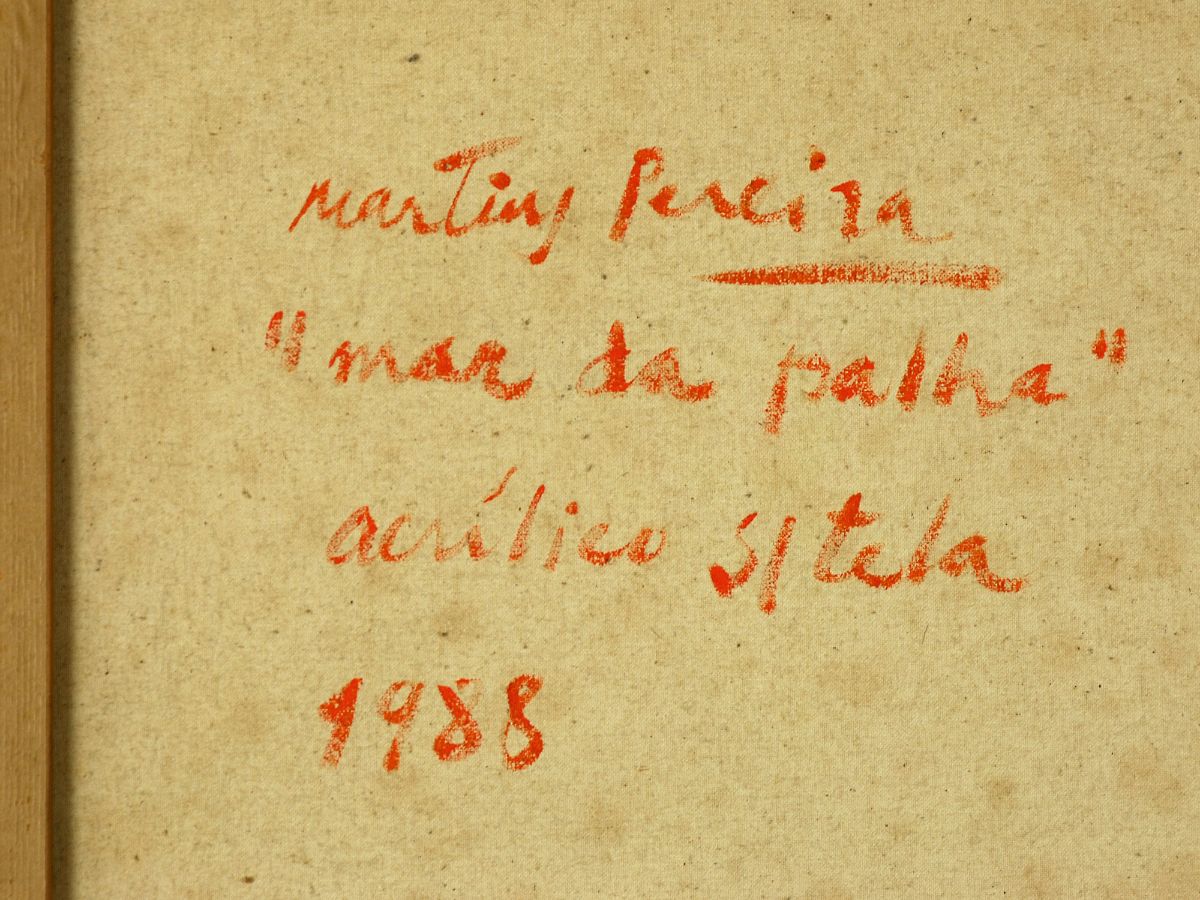 martins Pereira
"mar da palha"
acrílico s/ tela
1988